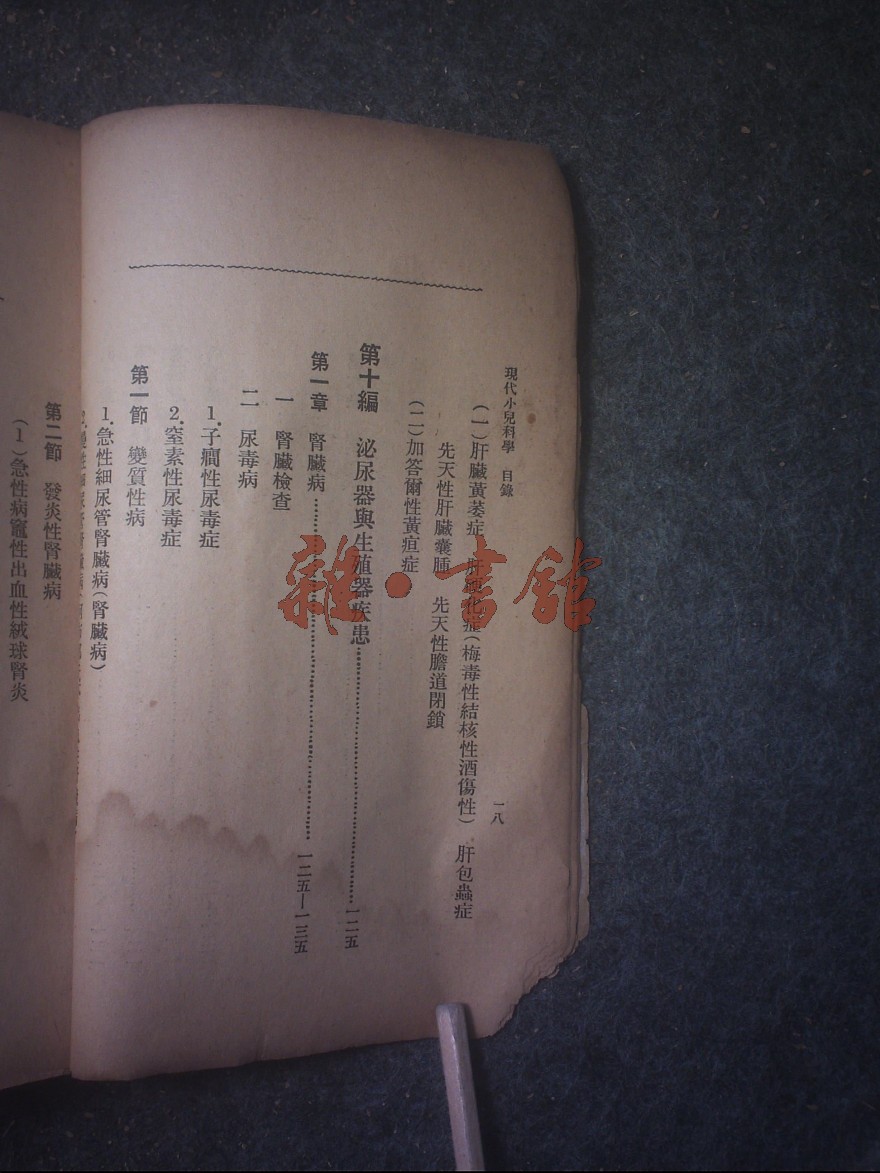 現代小兒科學 目錄
一八
(一)肝臟黃萎症 肝硬化症(梅毒性結核性酒傷性) 肝包蟲症
先天性肝臟囊腫 先天性膽道閉鎖
(二)加答爾性黃疸症
第十編 泌尿器與生殖器疾患……一二五
第一章 腎臟病……一二五—一三五
一 腎臟檢查
二 尿毒病
1.子癎性尿毒症
2.窒素性尿毒症
第一節 變質性病
1.急性細尿管腎臟病(腎臟病)
第二節 發炎性腎臟病
(1)急性病竈性出血性絨球腎炎
雜·書館